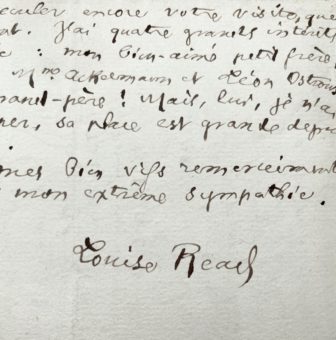 reculer encore votre visite, que
at. J'ai quatre grands intérêts
: mon bien-aimé petit frère,
Mme Ackermann et Léon Ostrow
grand-père ! Mais, lui, je n'
er, sa place est grande depu
mes bien vifs remerciement
mon extrême sympathie.
Louise Read